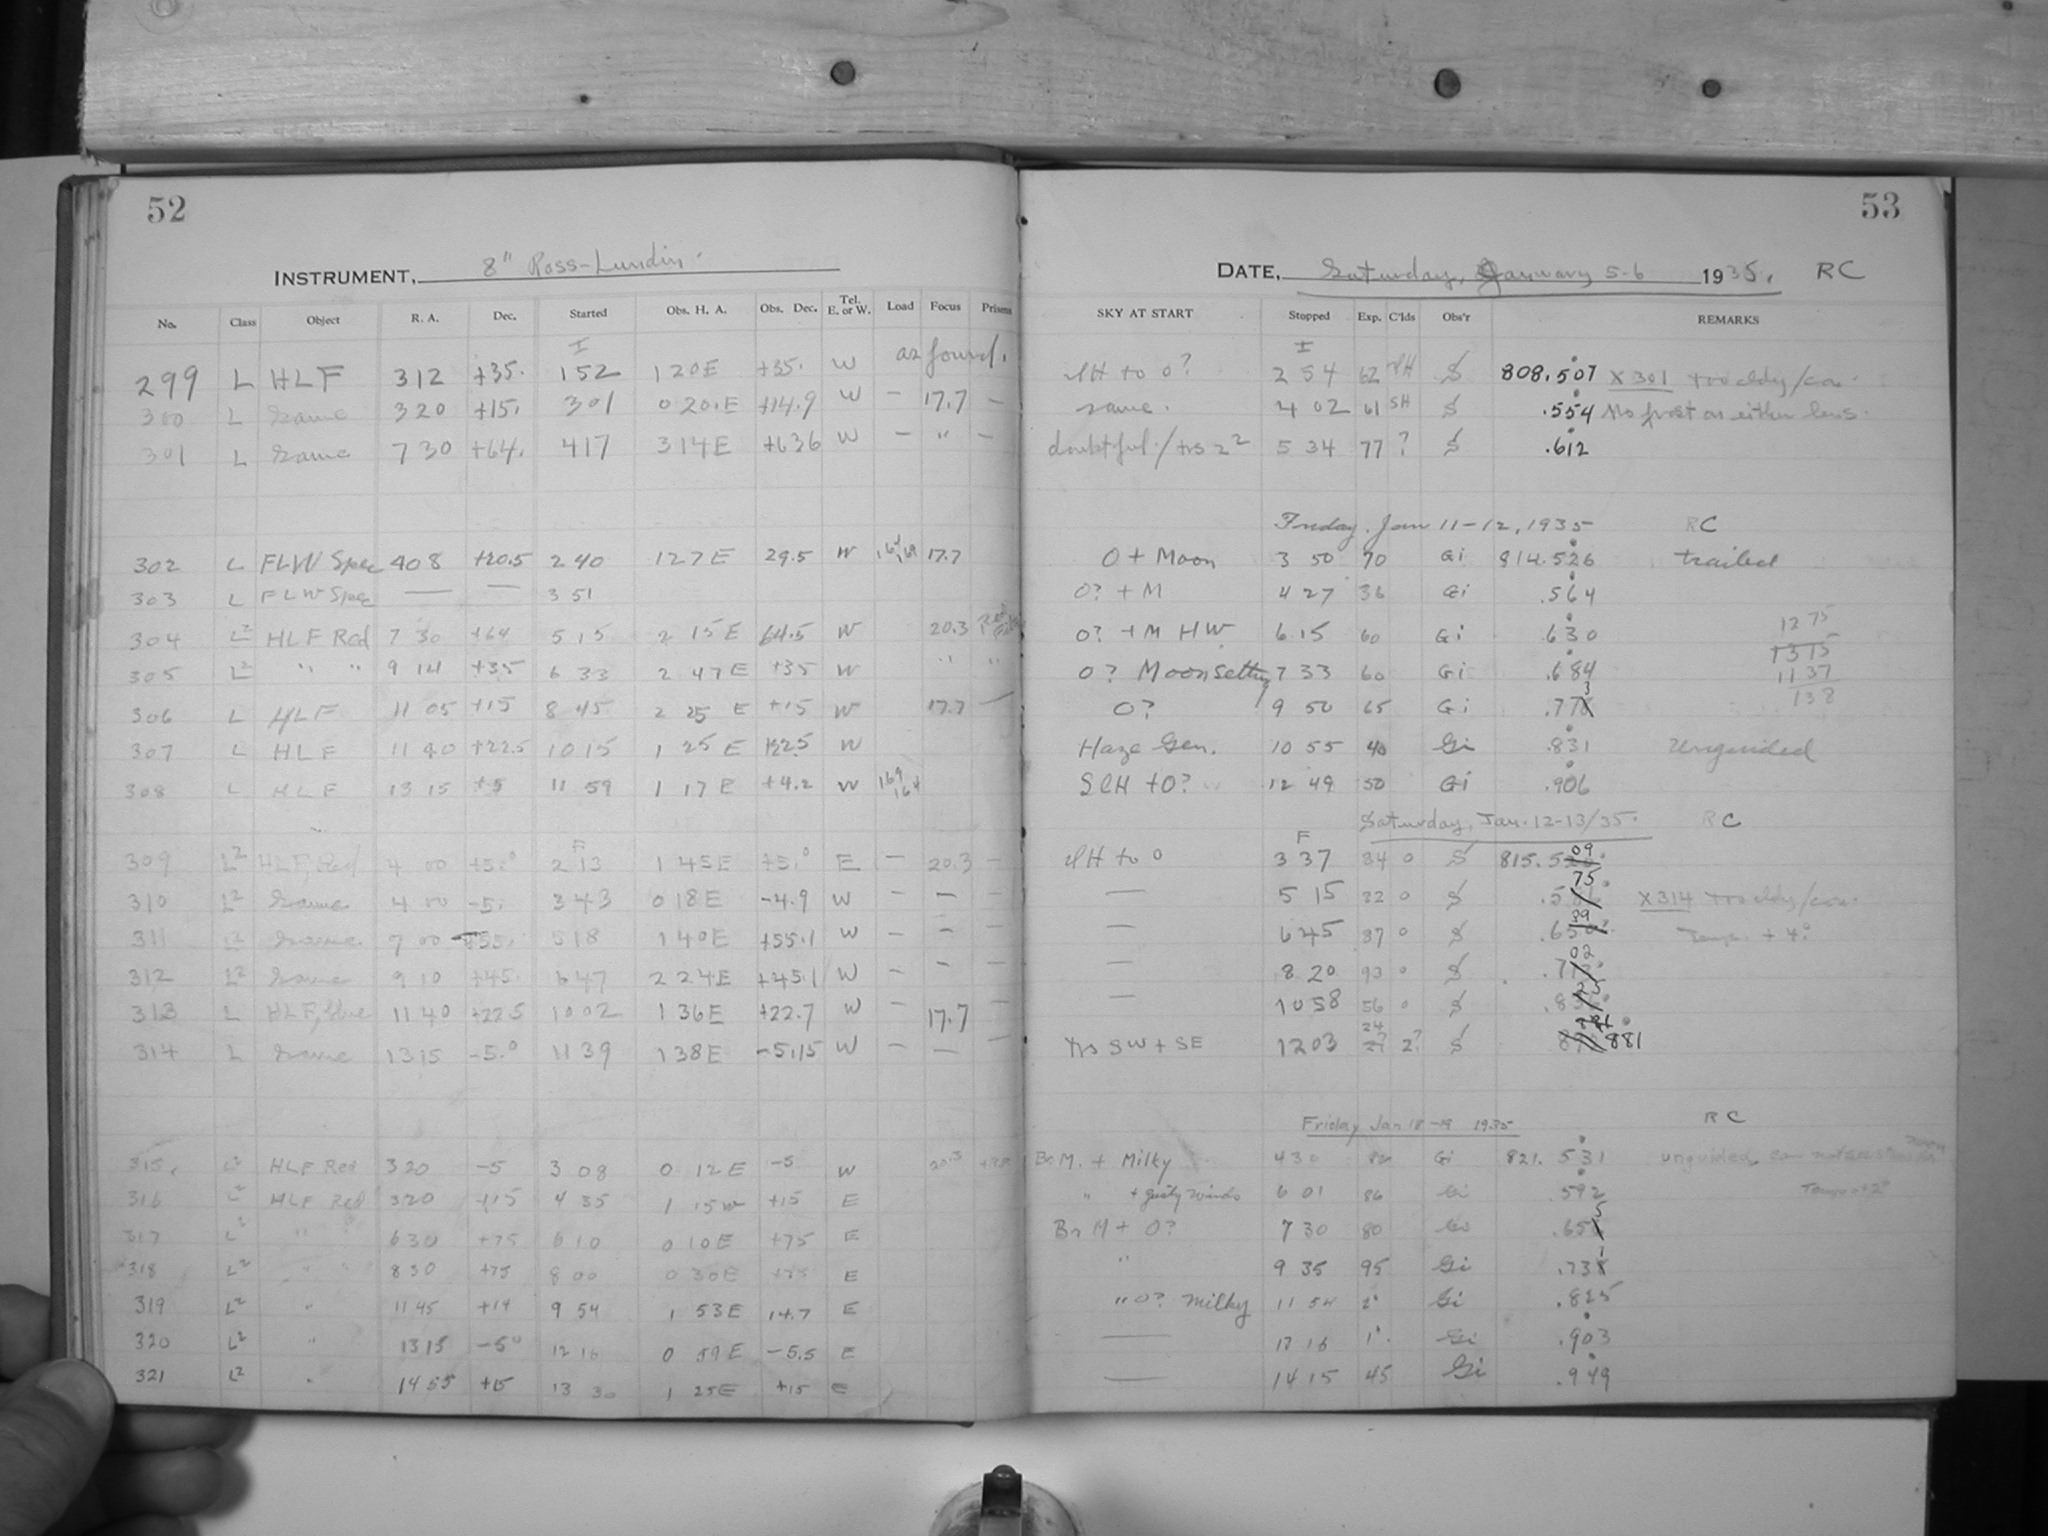 52
INSTRUMENT, 8" Ross-Lundin.
No. Class Object R. A. Dec. Started Obs. H. A. Obs. Dec. Tel. E. or W. Load Focus Prisms
299 L HLF 312 +35. 152 120E +35. W as found.
300 L Same 320 +15. 301 020.E +14.9 W — 17.7 —
301 L Same 730 +64. 417 314E +63.6 W — " —
302 L FLW Spec 408 +20.5 240 127E 29.5 W 17.7
303 L FLW Spec — — 351
304 L2 HLF Red 730 +64 515 2 15E 64.5 W 20.3
305 L2 " " 9 14 +35 6 33 2 47E +35 W " "
306 L HLF 11 05 +15 8 45 2 25 E +15 W 17.7 —
307 L HLF 11 40 +22.5 10 15 1 25 E W
308 L HLF 13 15 +5 11 59 1 17 E +4.2 W 169 164
309 L2 HLF, Red 4 00 +5.0 213 145E +5.0 E — 20.3 —
310 L2 Same 4 00 -5. 343 018E -4.9 W — — —
311 L2 Same 9 00 +55. 518 140E +55.1 W — — —
312 L2 Same 9 10 +45. 647 224E +45.1 W — — —
313 L HLF, blue 1140 +22.5 1002 136E +22.7 W — 17.7 —
314 L Same 1315 -5.0 1139 138E -5.15 W — — —
315. L2 HLF Red 320 -5 3 08 0 12E -5 W 20.3
316 L2 HLF Red 320 +15 4 35 1 15W +15 E
317 L2 " " 630 +75 6 10 0 10E +75 E
318 L2 " " 830 +75 8 00 0 30E +75 E
319 L2 " 1145 +14 9 54 1 53E 14.7 E
320 L2 " 1315 -5° 12 16 0 59E -5.5 E
321 L2 " 1455 +15 13 30 1 25E +15 E
53
DATE, Saturday, January 5-6 1935. RC
SKY AT START Stopped Exp. C'lds Obs'r REMARKS
to 0? 254 62 S 808.507 X 301
same. 402 61 SH S .554 No frost on either lens.
doubtful / 534 77 ? S .612
Friday. Jan 11-12, 1935 RC
0 + Moon 3 50 70 Gi 814.526 trailed
0? + M 4 27 36 Gi .564
0? + M HW 6 15 60 Gi .630 1275
0? Moon Setting 7 33 60 Gi .684 1315 1137 138
0? 9 50 65 Gi .773
Haze Gen. 10 55 40 Gi .831 Unguided
SCH + 0? 12 49 50 Gi .906
Saturday, Jan. 12-13/35. RC
to 0 337 84 0 S 815.509
— 5 15 0 S .575 X 314
— 645 87 0 S .639 Temp. + 4°
— 8 20 93 0 S .702
— 1058 56 0 S
SW + SE 1203 24 2? S 881
Friday Jan 18-19 1935 RC
Br. M. + Milky 430 82 Gi 821.531 unguided
" + gusty winds 6 01 86 Gi .592
Br M + 0? 7 30 80 Gi .655
" 9 35 95 Gi .731
" 0? Milky 11 54 Gi .825
— Gi .903
— 14 15 45 Gi .949